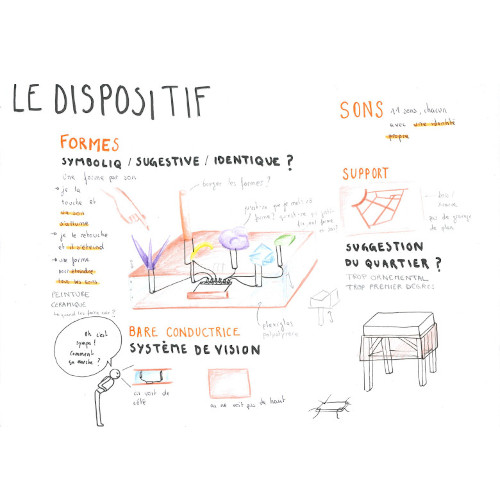 LE DISPOSITIF
FORMES
SYMBOLIQ / SUGESTIVE / IDENTIQUE ?
Une forme par son
→ je la
touche et
un son
s'allume
→ je la retouche
et il s'éteint
→ une forme
pour éteindre
tous les sons
PEINTURE
CERAMIQUE
bouger les formes ?
plexiglas
SONS
11 sons, chacun
avec une identité
propre
SUPPORT
bois /
pas de gravage
de plan
SUGGESTION
DU QUARTIER ?
TROP ORNEMENTAL
TROP PREMIER DEGRÉS
BARE CONDUCTRICE
SYSTÈME DE VISION
Oh c'est
sympa !
Comment
ça marche ?
on voit de
côté
on ne voit pas de haut